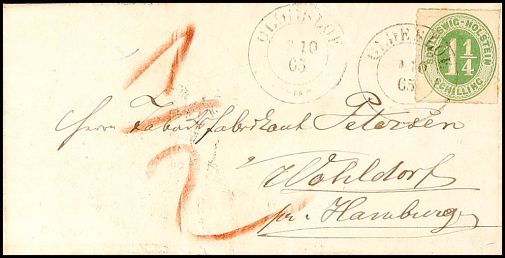 OLDESLOE
2 10
65
SCHLESWIG-HOLSTEIN
1 1/4
SCHILLING
1
2
Herrn Tabacksfabrikant Petersen
Wohldorf
pr. Hamburg